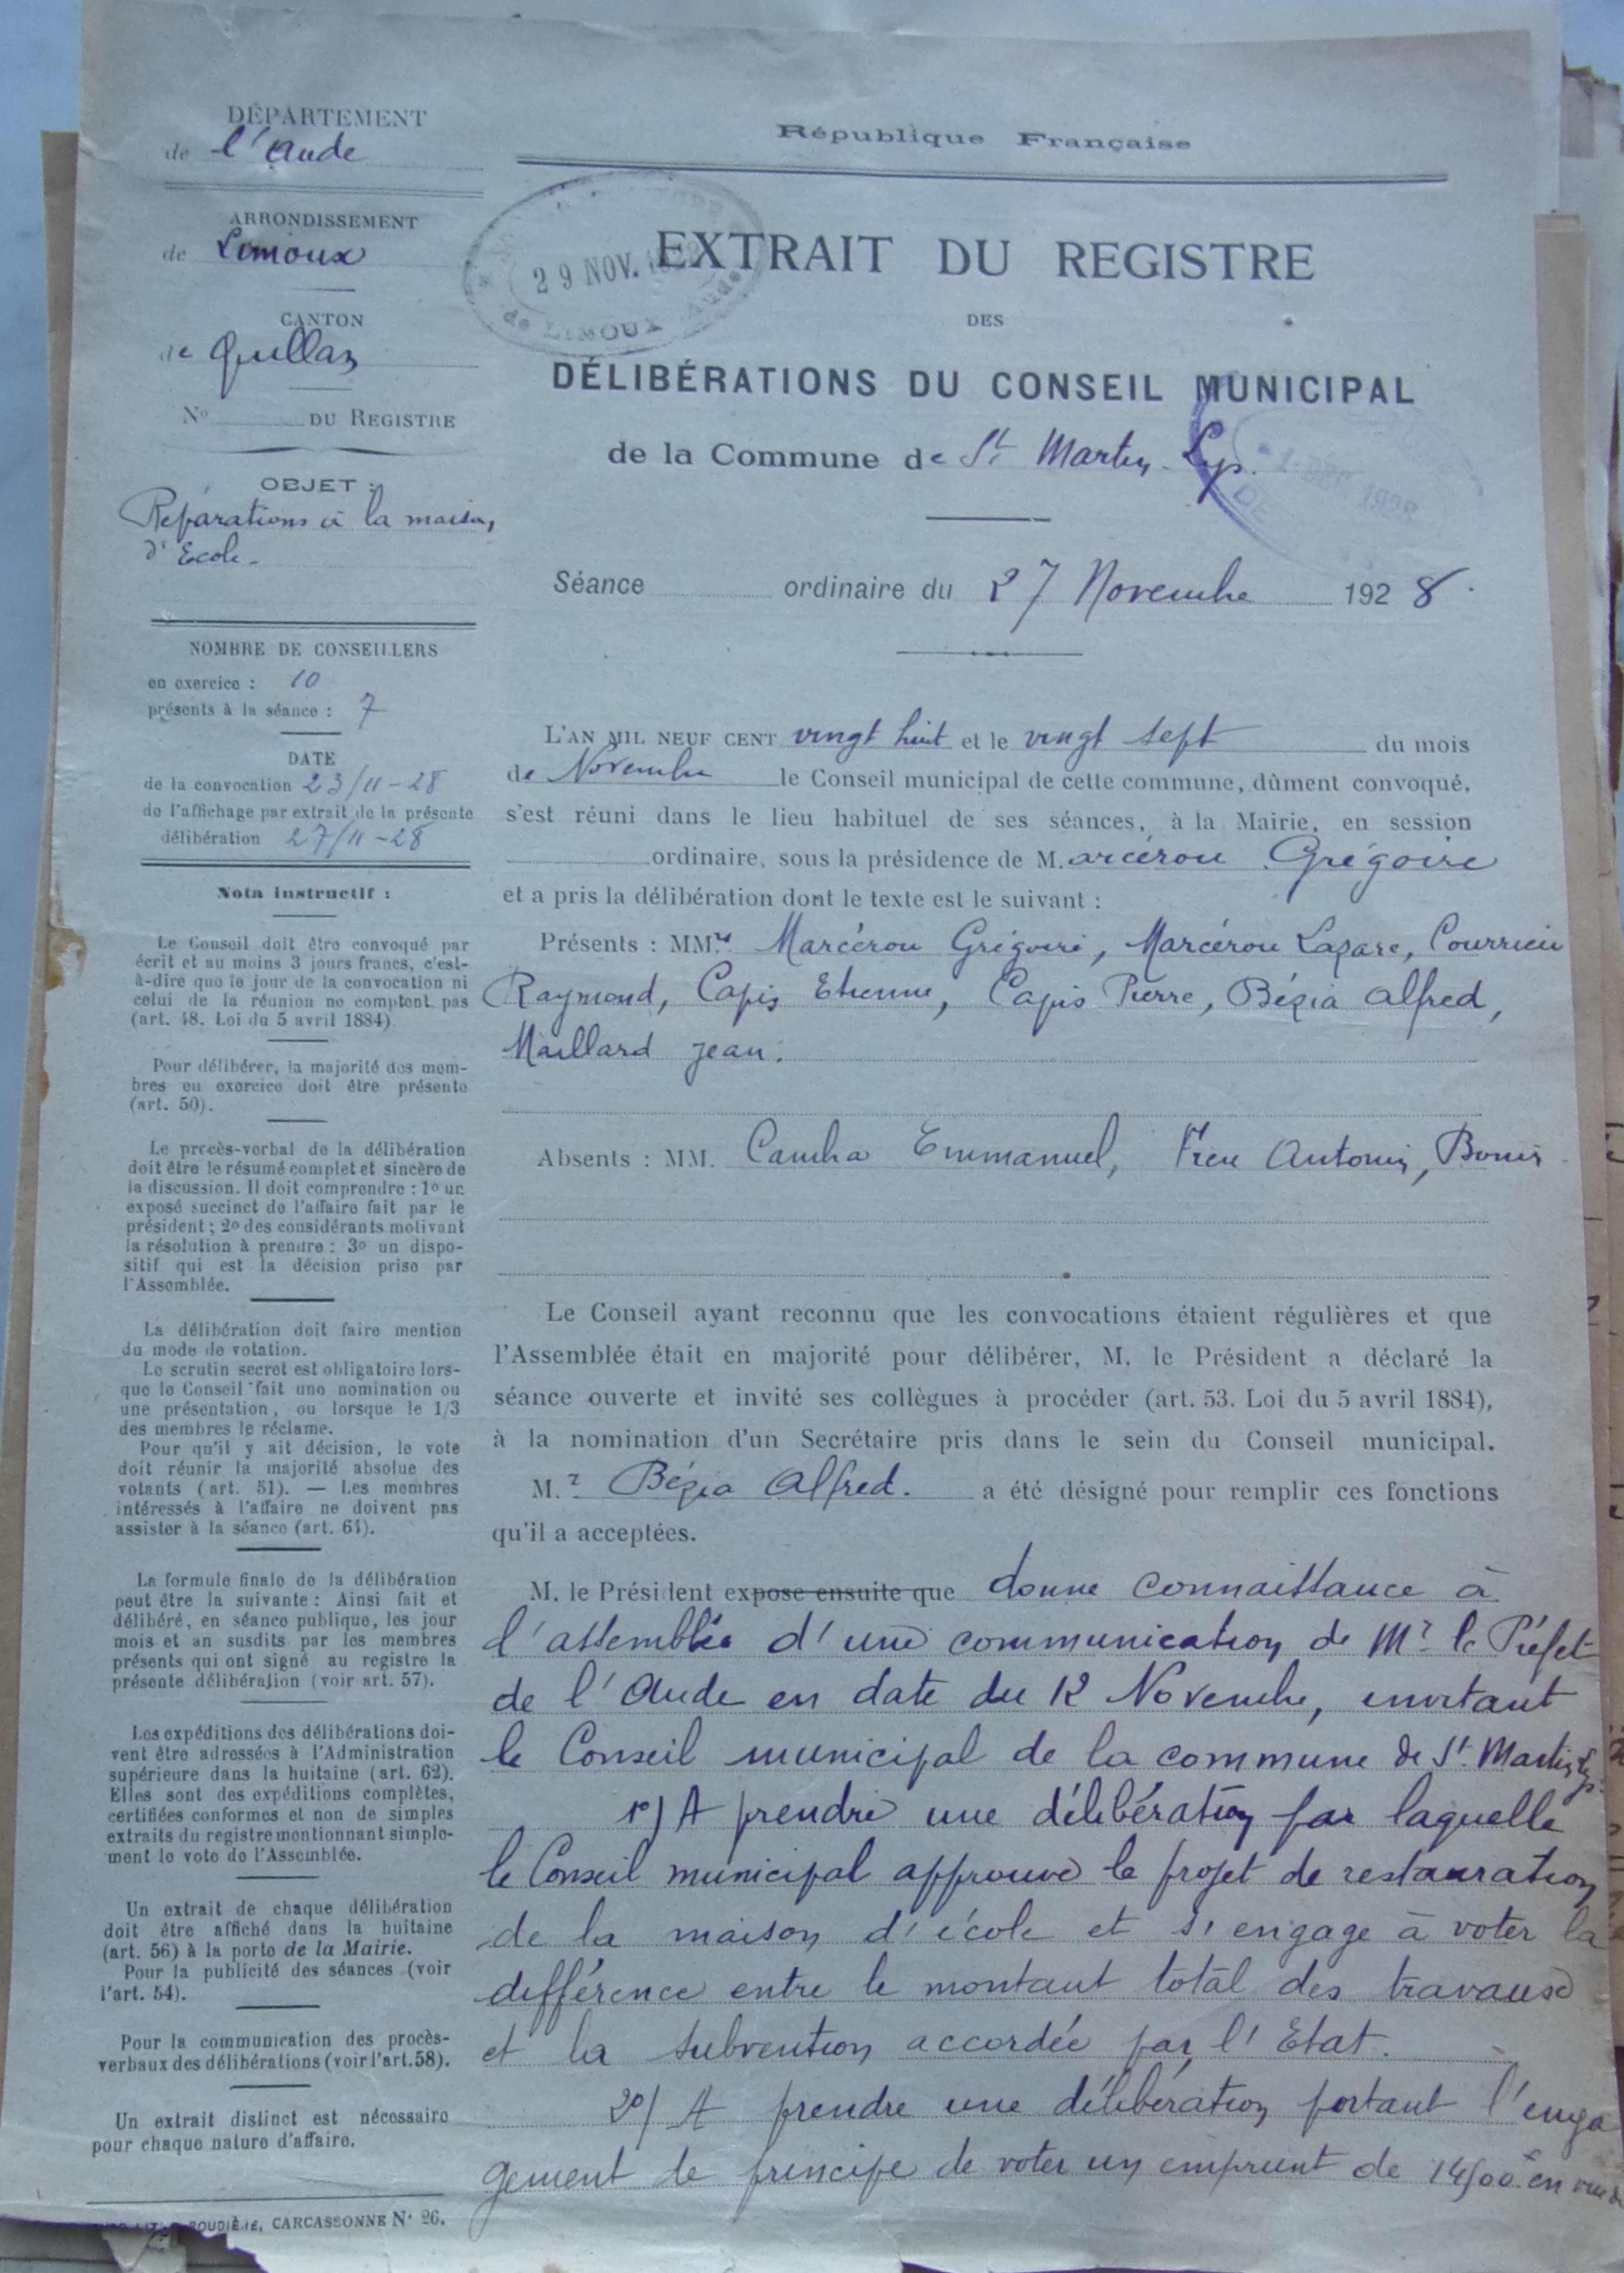 DÉPARTEMENT
de l'Aude
ARRONDISSEMENT
de Limoux
CANTON
de Quillan
No DU REGISTRE
OBJET :
Réparations à la maison
d'Ecole.
NOMBRE DE CONSEILLERS
en exercice : 10
présents à la séance : 7
DATE
de la convocation 23/11-28
de l'affichage par extrait de la présente
délibération 27/11-28
Nota instructif :
Le Conseil doit être convoqué par
écrit et au moins 3 jours francs, c'est-
à-dire que le jour de la convocation ni
celui de la réunion ne comptent pas
(art. 48. Loi du 5 avril 1884)
Pour délibérer, la majorité des mem-
bres en exercice doit être présente
(art. 50).
Le procès-verbal de la délibération
doit être le résumé complet et sincère de
la discussion. Il doit comprendre : 1o un
exposé succinct de l'affaire fait par le
président ; 2o des considérants motivant
la résolution à prendre : 3o un dispo-
sitif qui est la décision prise par
l'Assemblée.
La délibération doit faire mention
du mode de votation.
Le scrutin secret est obligatoire lors-
que le Conseil fait une nomination ou
une présentation, ou lorsque le 1/3
des membres le réclame.
Pour qu'il y ait décision, le vote
doit réunir la majorité absolue des
votants (art. 51). — Les membres
intéressés à l'affaire ne doivent pas
assister à la séance (art. 64).
La formule finale de la délibération
peut être la suivante : Ainsi fait et
délibéré, en séance publique, les jour
mois et an susdits par les membres
présents qui ont signé au registre la
présente délibération (voir art. 57).
Les expéditions des délibérations doi-
vent être adressées à l'Administration
supérieure dans la huitaine (art. 62).
Elles sont des expéditions complètes,
certifiées conformes et non de simples
extraits du registre mentionnant simple-
ment le vote de l'Assemblée.
Un extrait de chaque délibération
doit être affiché dans la huitaine
(art. 56) à la porte de la Mairie.
Pour la publicité des séances (voir
l'art. 54).
Pour la communication des procès-
verbaux des délibérations (voir l'art. 58).
Un extrait distinct est nécessaire
pour chaque nature d'affaire.
ROUDIÈRE, CARCASSONNE No 26.
République Française
29 NOV.
LIMOUX
EXTRAIT DU REGISTRE
DES
DÉLIBÉRATIONS DU CONSEIL MUNICIPAL
de la Commune de St Martin-Lys.
DEC 1928
DE
Séance ordinaire du 27 Novembre 1928.
L'AN MIL NEUF CENT vingt huit et le vingt sept du mois
de Novembre le Conseil municipal de cette commune, dûment convoqué,
s'est réuni dans le lieu habituel de ses séances, à la Mairie, en session
ordinaire, sous la présidence de M. arcérou Grégoire
et a pris la délibération dont le texte est le suivant :
Présents : MM. Marcérou Grégoire, Marcérou Lazare,
Raymond, Capis Etienne, Capis Pierre, Bézia Alfred,
Maillard Jean.
Absents : MM. Emmanuel, Antonin,
Le Conseil ayant reconnu que les convocations étaient régulières et que
l'Assemblée était en majorité pour délibérer, M. le Président a déclaré la
séance ouverte et invité ses collègues à procéder (art. 53. Loi du 5 avril 1884),
à la nomination d'un Secrétaire pris dans le sein du Conseil municipal.
M.r Bézia Alfred. a été désigné pour remplir ces fonctions
qu'il a acceptées.
M. le Président expose ensuite que donne connaissance à
l'assemblée d'une communication de Mr le Préfet
de l'Aude en date du 12 Novembre, invitant
le Conseil municipal de la commune de St Martin Lys.
1o) A prendre une délibération par laquelle
le Conseil municipal approuve le projet de restauration
de la maison d'école et s'engage à voter la
différence entre le montant total des travaux
et la subvention accordée par l'Etat.
2o) A prendre une délibération portant l'enga
gement de principe de voter un emprunt de en vue